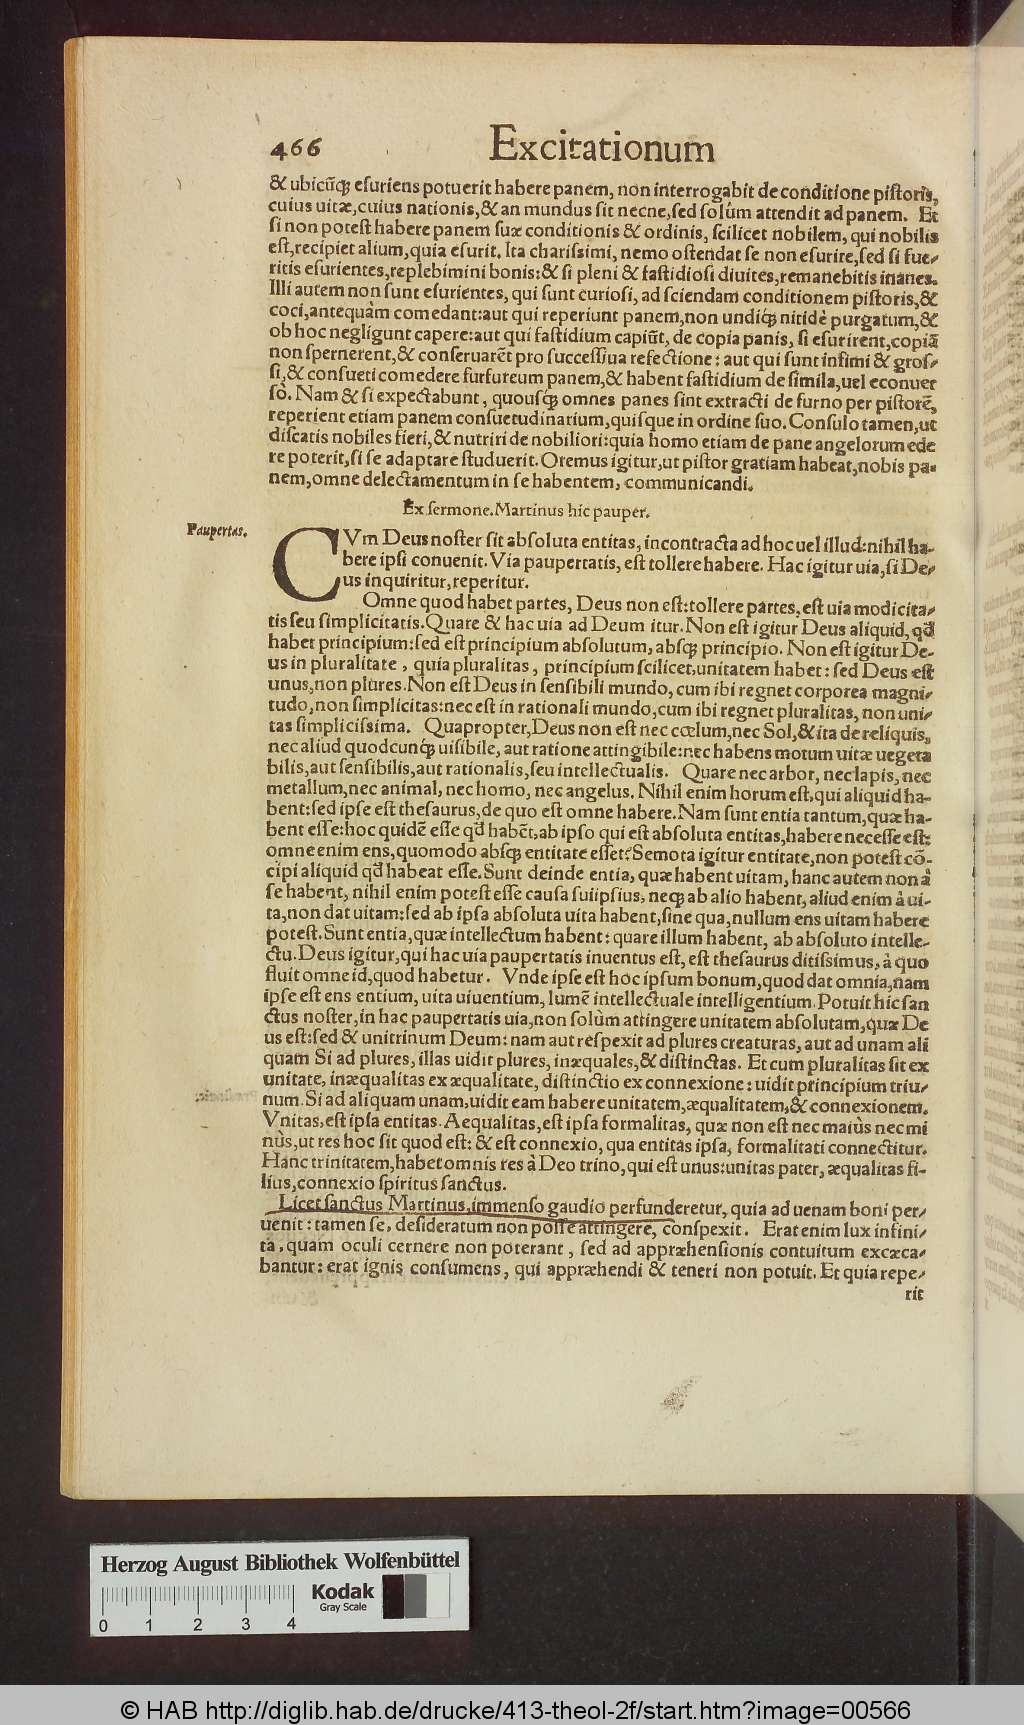 466 Excitationum
& ubicūq; esuriens potuerit habere panem, non interrogabit de conditione pistoris,
cuius uitæ, cuius nationis, & an mundus sit necne, sed solùm attendit ad panem. Et
si non potest habere panem suæ conditionis & ordinis, scilicet nobilem, qui nobilis
est, recipiet alium, quia esurit. Ita charissimi, nemo ostendat se non esurire, sed si fue-
ritis esurientes, replebimini bonis: & si pleni & fastidiosi diuites, remanebitis inanes.
Illi autem non sunt esurientes, qui sunt curiosi, ad sciendam conditionem pistoris, &
coci, antequàm comedant: aut qui reperiunt panem, non undiq; nitidè purgatum, &
ob hoc negligunt capere: aut qui fastidium capiūt, de copia panis, si esurirent, copiā
non spernerent, & conseruarēt pro successiua refectione: aut qui sunt infimi & gros-
si, & consueti comedere furfureum panem, & habent fastidium de simila, uel econuer
sò. Nam & si expectabunt, quousq; omnes panes sint extracti de furno per pistorē,
reperient etiam panem consuetudinarium, quisque in ordine suo. Consulo tamen, ut
discatis nobiles fieri, & nutriri de nobiliori: quia homo etiam de pane angelorum ede
re poterit, si se adaptare studuerit. Oremus igitur, ut pistor gratiam habeat, nobis pa-
nem, omne delectamentum in se habentem, communicandi.
Ex sermone. Martinus hic pauper.
Paupertas.
CVm Deus noster sit absoluta entitas, incontracta ad hoc uel illud: nihil ha-
bere ipsi conuenit. Via paupertatis, est tollere habere. Hac igitur uia, si De-
us inquiritur, reperitur.
Omne quod habet partes, Deus non est: tollere partes, est uia modicita-
tis seu simplicitatis. Quare & hac uia ad Deum itur. Non est igitur Deus aliquid, qđ
habet principium: sed est principium absolutum, absq; principio. Non est igitur De-
us in pluralitate, quia pluralitas, principium scilicet, unitatem habet: sed Deus est
unus, non plures. Non est Deus in sensibili mundo, cum ibi regnet corporea magni-
tudo, non simplicitas: nec est in rationali mundo, cum ibi regnet pluralitas, non uni-
tas simplicissima. Quapropter, Deus non est nec cœlum, nec Sol, & ita de reliquis,
nec aliud quodcunq; uisibile, aut ratione attingibile: nec habens motum uitæ uegeta
bilis, aut sensibilis, aut rationalis, seu intellectualis. Quare nec arbor, nec lapis, nec
metallum, nec animal, nec homo, nec angelus. Nihil enim horum est, qui aliquid ha-
bent: sed ipse est thesaurus, de quo est omne habere. Nam sunt entia tantum, quæ ha-
bent esse: hoc quidē esse qđ habēt, ab ipso qui est absoluta entitas, habere necesse est:
omne enim ens, quomodo absq; entitate esset? Semota igitur entitate, non potest cō-
cipi aliquid qđ habeat esse. Sunt deinde entia, quæ habent uitam, hanc autem non à
se habent, nihil enim potest esse causa sui ipsius, neq; ab alio habent, aliud enim à ui-
ta, non dat uitam: sed ab ipsa absoluta uita habent, sine qua, nullum ens uitam habere
potest. Sunt entia, quæ intellectum habent: quare illum habent, ab absoluto intelle-
ctu. Deus igitur, qui hac uia paupertatis inuentus est, est thesaurus ditissimus, à quo
fluit omne id, quod habetur. Vnde ipse est hoc ipsum bonum, quod dat omnia, nam
ipse est ens entium, uita uiuentium, lumē intellectuale intelligentium. Potuit hic san
ctus noster, in hac paupertatis uia, non solùm attingere unitatem absolutam, quæ De
us est: sed & unitrinum Deum: nam aut respexit ad plures creaturas, aut ad unam ali
quam Si ad plures, illas uidit plures, inæquales, & distinctas. Et cum pluralitas sit ex
unitate, inæqualitas ex æqualitate, distinctio ex connexione: uidit principium triu-
num. Si ad aliquam unam, uidit eam habere unitatem, æqualitatem, & connexionem.
Vnitas, est ipsa entitas. Aequalitas, est ipsa formalitas, quæ non est nec maiùs nec mi
nùs, ut res hoc sit quod est: & est connexio, qua entitas ipsa, formalitati connectitur.
Hanc trinitatem, habet omnis res à Deo trino, qui est unus: unitas pater, æqualitas fi-
lius, connexio spiritus sanctus.
Licet sanctus Martinus, immenso gaudio perfunderetur, quia ad uenam boni per-
uenit: tamen se, desideratum non posse attingere, conspexit. Erat enim lux infini-
ta, quam oculi cernere non poterant, sed ad appræhensionis contuitum excæca-
bantur: erat ignis consumens, qui appræhendi & teneri non potuit. Et quia repe-
rit
Herzog August Bibliothek Wolfenbüttel
Kodak
Gray Scale
0 1 2 3 4
© HAB http://diglib.hab.de/drucke/413-theol-2f/start.htm?image=00566